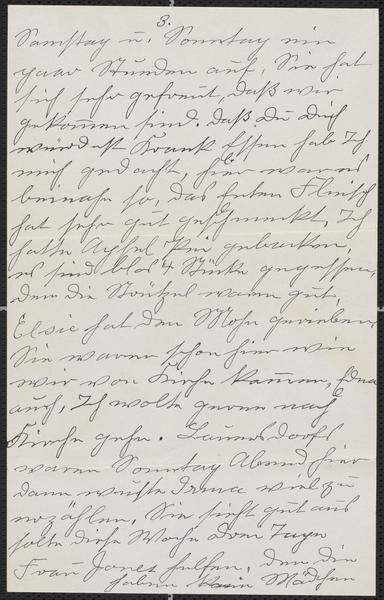 3.
Samstag u. Sonntag ein
paar Stunden auf, Sie hat
sich sehr gefreut, daß wir
gekommen sind. daß Du Dich
würdest Krank Essen hab Ich
mich gedacht, hier war es
beinahe so, das Enten Fleisch
hat sehr gut geschmeckt, Ich
hatte Apfel Kei gebacken,
es sind blos 4 Stücke gegessen,
den die Strützel waren gut,
Elsie hat den Mohn gerieben.
Sie waren schon hier wie
wir von Kirche kammen, Edna
auch, Ich wolte gerne nach
Kirche gehn. Lauersdorfs
waren Sonntag Abend hier
dann wuste Irma viel zu
erzählen, Sie sieht gut aus
solte diese Woche drei Tage
Frau Janet helfen, den die
haben kein Mädchen